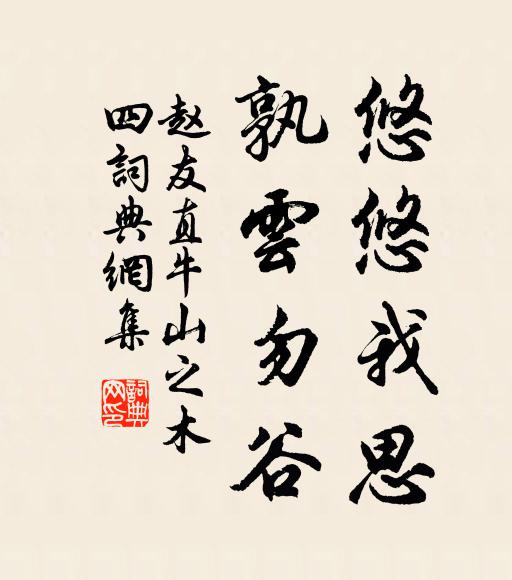 悠悠我思
孰雲勿谷
赵友直牛山之木
四詞典網集
詞典
网印